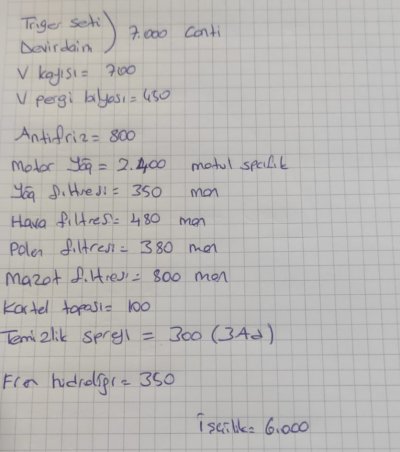 Triger seti
Devirdaim ) 7.000 Conti
V kayısı = 700
V pergi bilyası = 450
Antifriz = 800
Motor Yağ = 2.400 motul spcifik
Yağ filtresi = 350 man
Hava filtresi = 480 man
Polen filtresi = 380 man
Mazot filtresi = 800 man
Kartel tapası = 100
Temizlik spreyi = 300 (3Ad)
Fren hidroliği = 350
İşçilik = 6.000